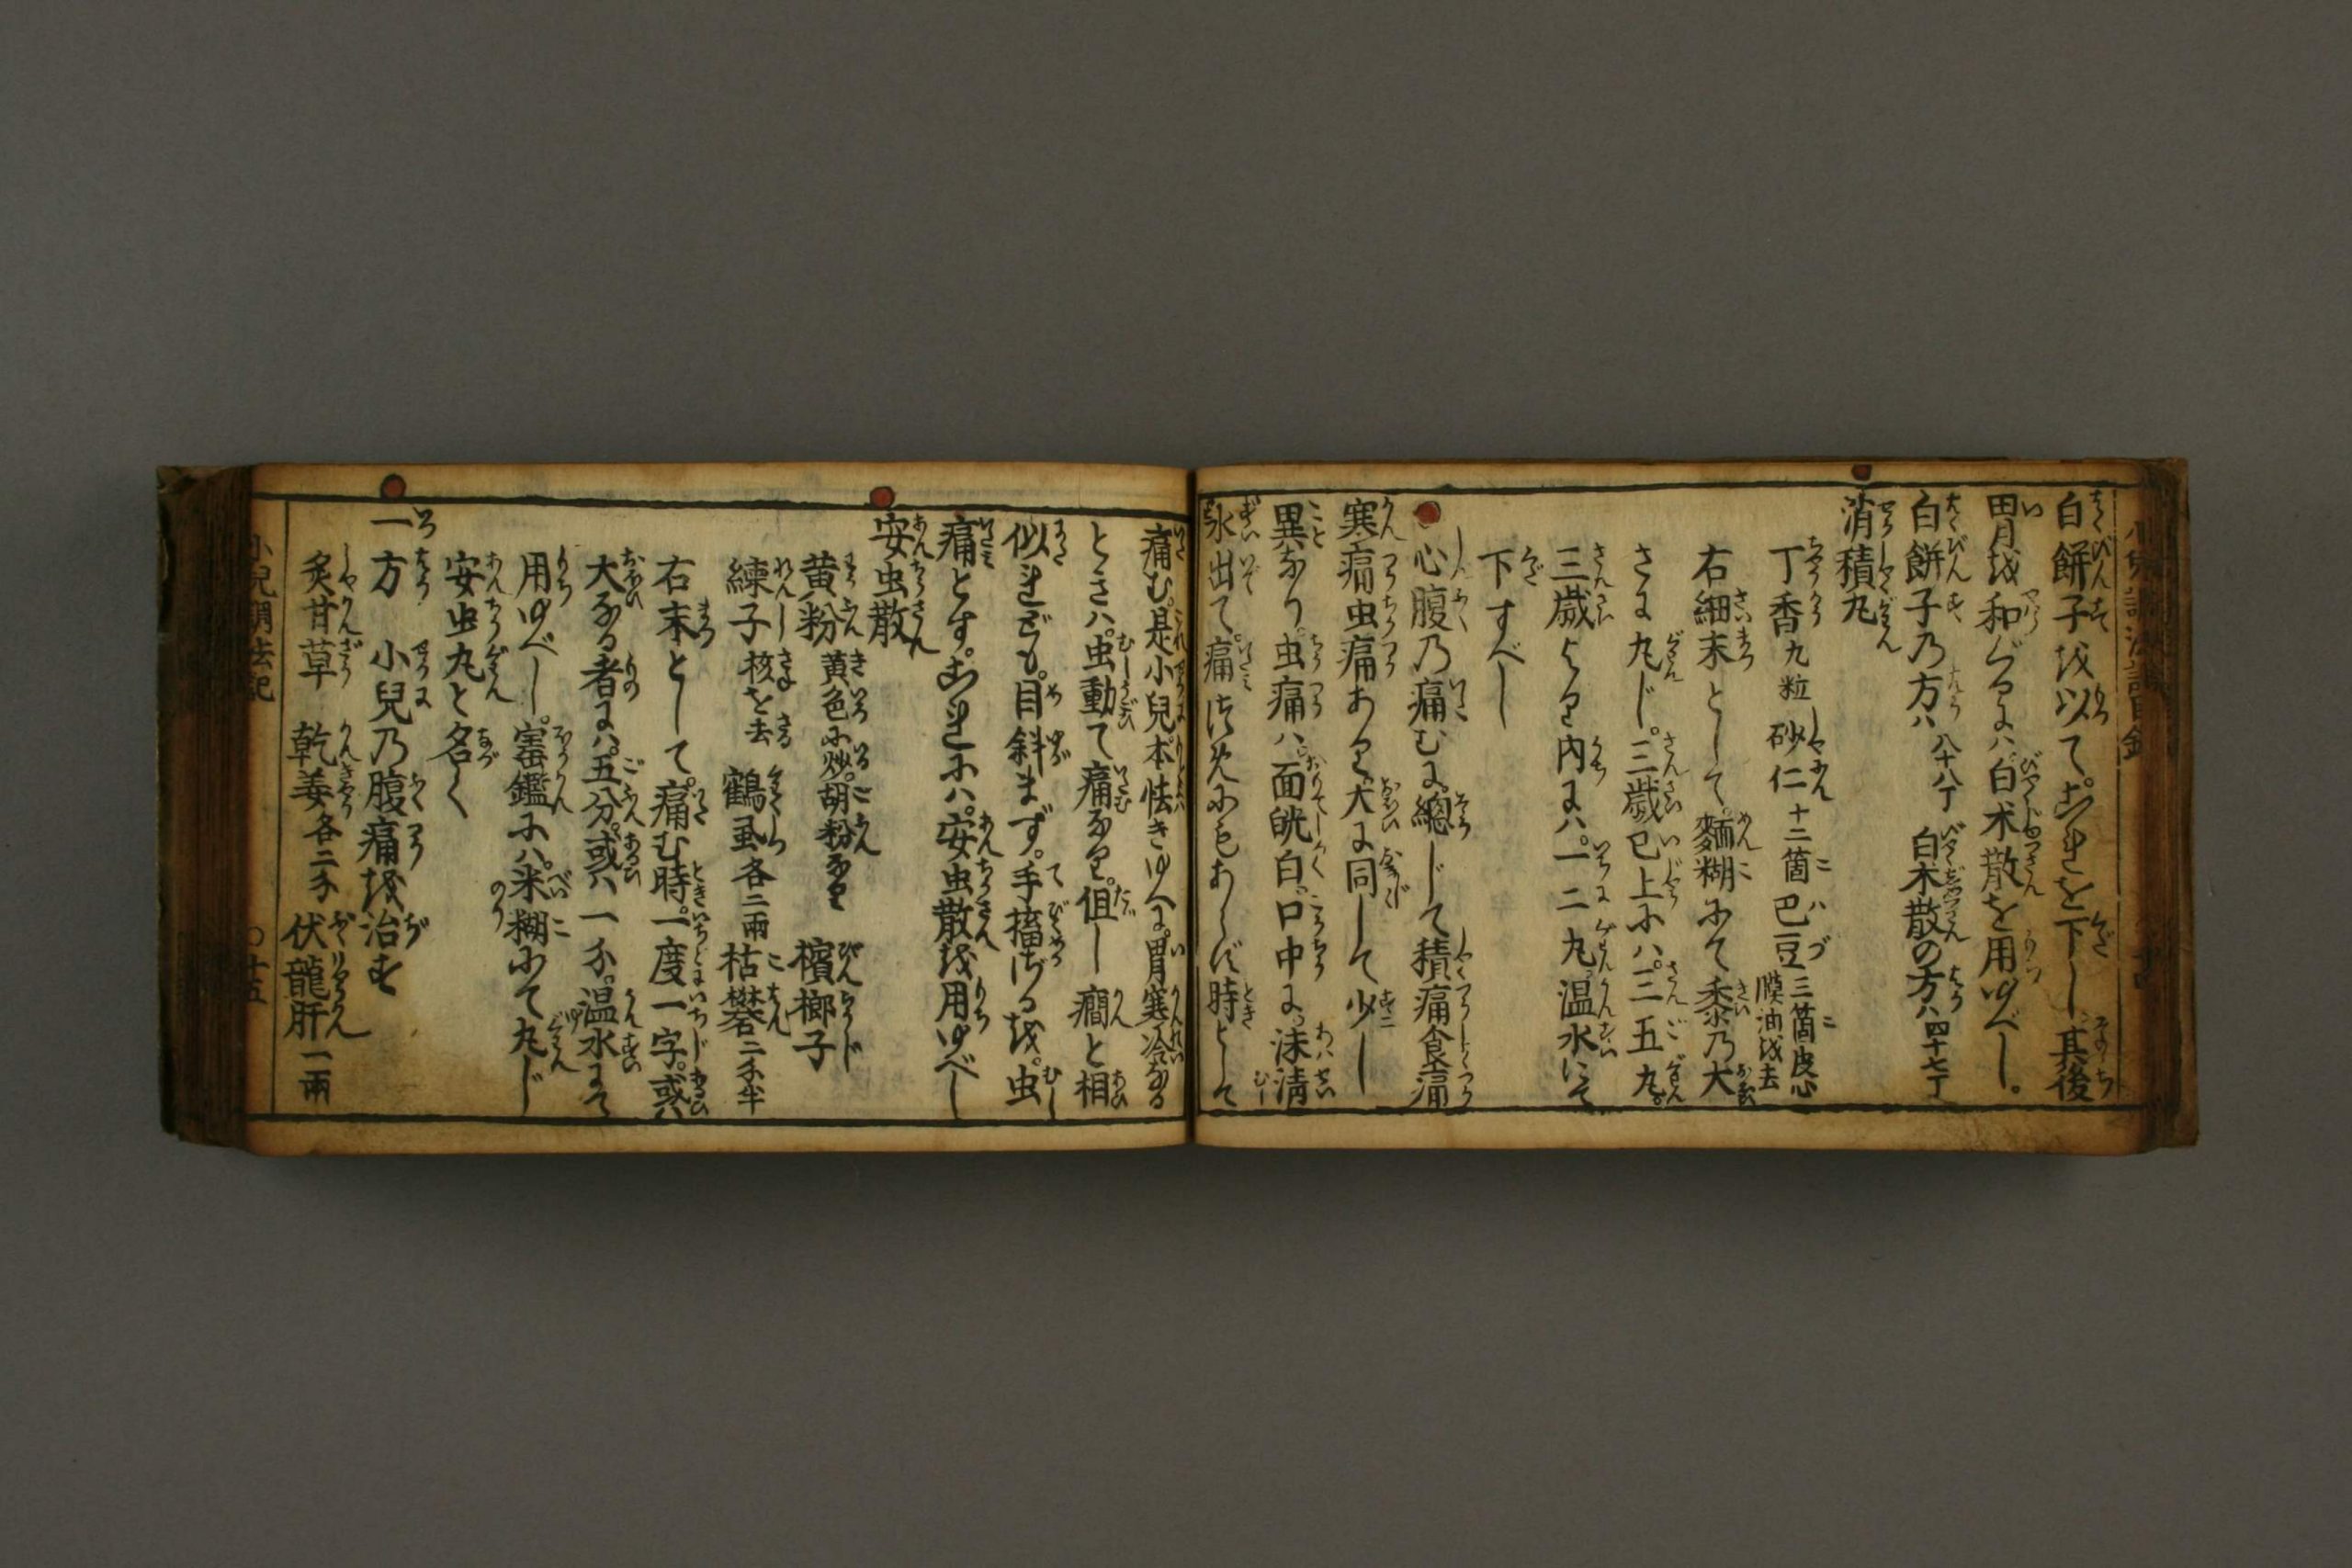 白餅子越以て。これを下し。其後
胃越和ぐるには。白朮散を用ゆべし。
白餅子乃方ハ 八十八丁 白朮散の方ハ 四十七丁
消積丸
丁香九粒 砂仁十二箇 巴豆三箇皮心
膜油越去
右細末として。麺糊にて黍乃大
さに丸じ。三歳已上にハ。三五丸。
三歳より内にハ。一二丸。温水にて
下すべし
心腹乃痛むに。總じて積痛食痛
寒痛虫痛あり。大に同して少し
異なり。虫痛ハ。面㿠白。口中に沫淸
水出て。痛
時として
痛む。是小兒本怯きゆへに。胃寒冷なる
ときハ。虫動て痛なり。但し癎と相
似れども。目斜まず。手搐せざる越。虫
痛とす。これにハ。安虫散越用ゆべし
安虫散
黄粉 黄色に炒。胡粉なり 檳榔子
練子 核を去 鶴虱各二兩 枯礬二匁半
右末として。痛む時。一度一字。或ハ
大なる者にハ。五分。或ハ一匁。温水にて
用ゆべし。寳鑑にハ。米糊にて丸じ
安虫丸と名く
一方 小兒乃腹痛越治す
炙甘草 乾姜各二匁 伏龍肝一兩
小兒調法記 〇十五